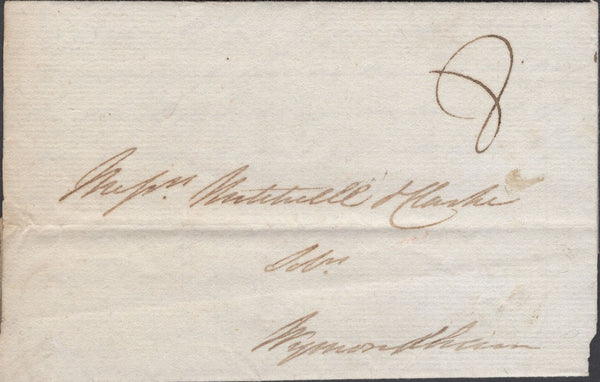 8
Messrs Mitchell & Clarke
Solrs
Wymondham